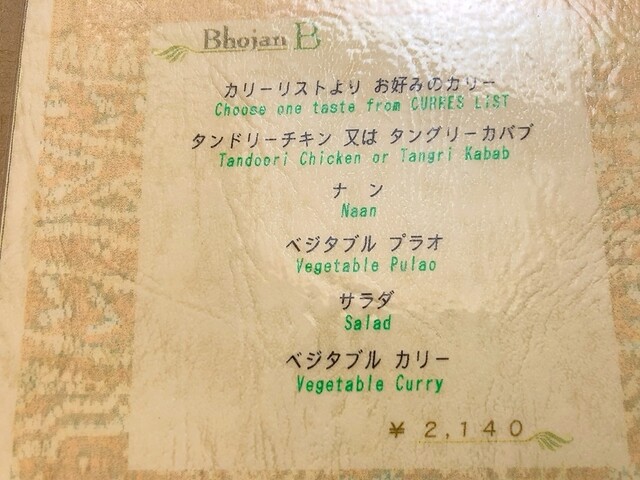 Bhojan B
カリーリストより お好みのカリー
Choose one taste from CURRES LiST
タンドリーチキン 又は タングリーカバブ
Tandoori Chicken or Tangri Kabab
ナン
Naan
ベジタブル プラオ
Vegetable Pulao
サラダ
Salad
ベジタブル カリー
Vegetable Curry
¥ 2,140